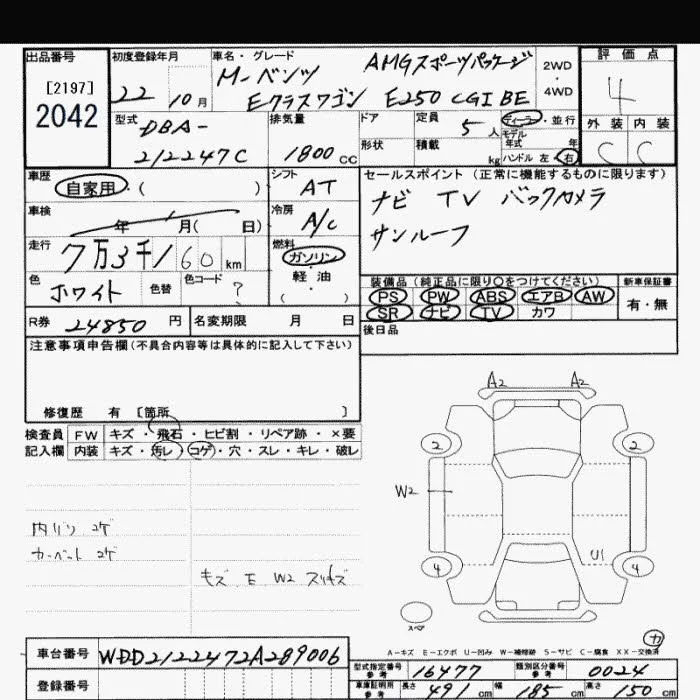 出品番号 初度登録年月 車名・グレード 評価点
[2197]
2042
22 10月
M-ベンツ AMGスポーツパッケージ
Eクラスワゴン E250 CGI BE
2WD
・
4WD
4
外装 内装
C C
型式 DBA-
212247C
排気量
1800cc
ドア 定員 5人
形状 積載 kg
ディーラー・並行
モデル年式 年
ハンドル 左・右
車歴 自家用・( )
シフト AT
セールスポイント(正常に機能するものに限ります)
ナビ TV バックカメラ
サンルーフ
車検 年 月( 日)
冷房 A/C
走行 7万3千160km
燃料 ガソリン
軽・油
( )
色 ホワイト 色替 色コード ?
装備品(純正品に限り○をつけてください) 新車保証書
PS PW ABS エアB AW 有・無
SR ナビ TV カワ
R券 24850円 名変期限 月 日
後日品
注意事項申告欄(不具合内容等は具体的に記入して下さい)
修復歴 有 〔箇所 〕
検査員 FW キズ・飛石・ヒビ割・リペア跡・×要
記入欄 内装 キズ・汚レ・コゲ・穴・スレ・キレ・破レ
A2 A2
2 2
W2
U1
4 4
スペア
カ
内バリ コゲ
カーペット コゲ
キズ E W2 スリキズ
A－キズ E－エクボ U－凹み W－補修跡 S－サビ C－腐食 XX－交換済
車台番号 WDD2122472A289006
登録番号
型式指定番号 参考 16477 類別区分番号 参考 0024
車庫証明用 参考 長さ 491cm 幅 185cm 高さ 150cm